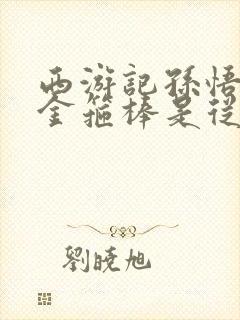 西游記孫悟
金箍棒是從
劉曉旭